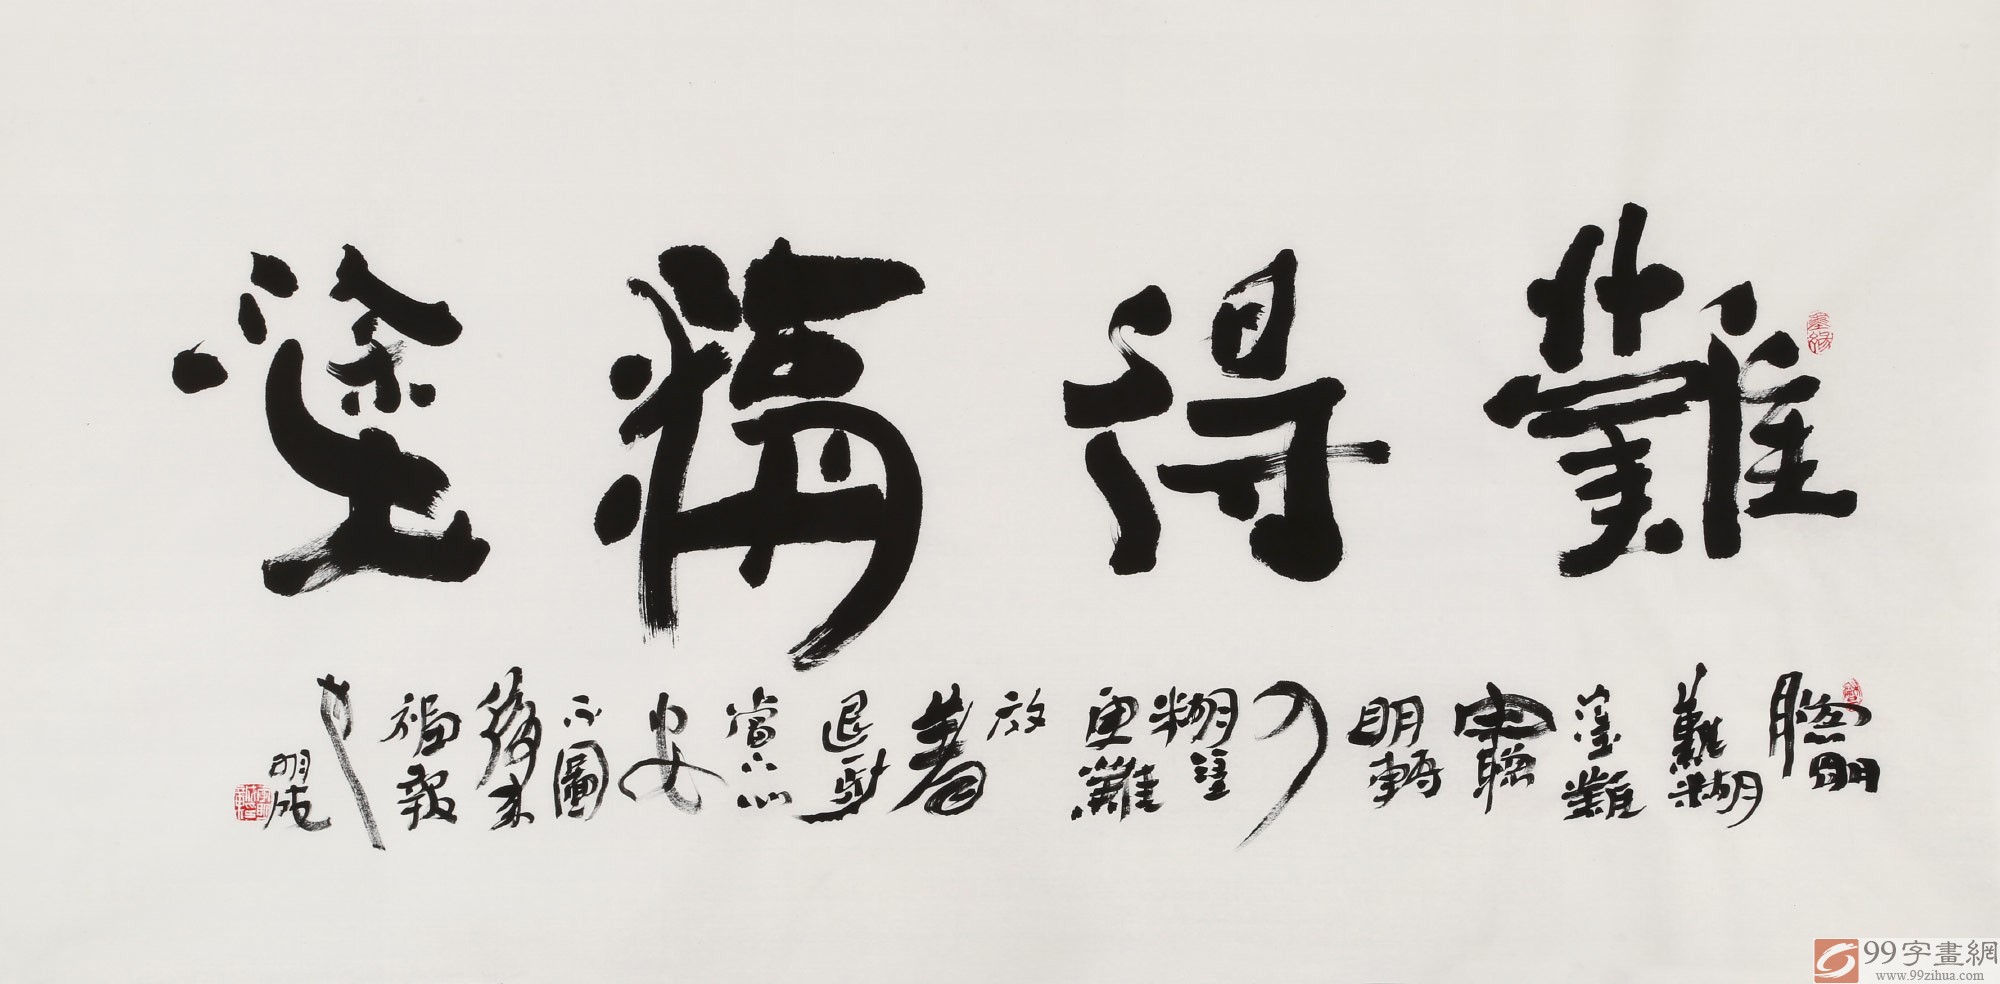 難得糊塗
聰明
難糊
塗難
由聰
明轉
入
糊塗
更難
放
著
退步
當下心
安
不圖
後來
福報
也
明成
99字畫網
www.99zihua.com